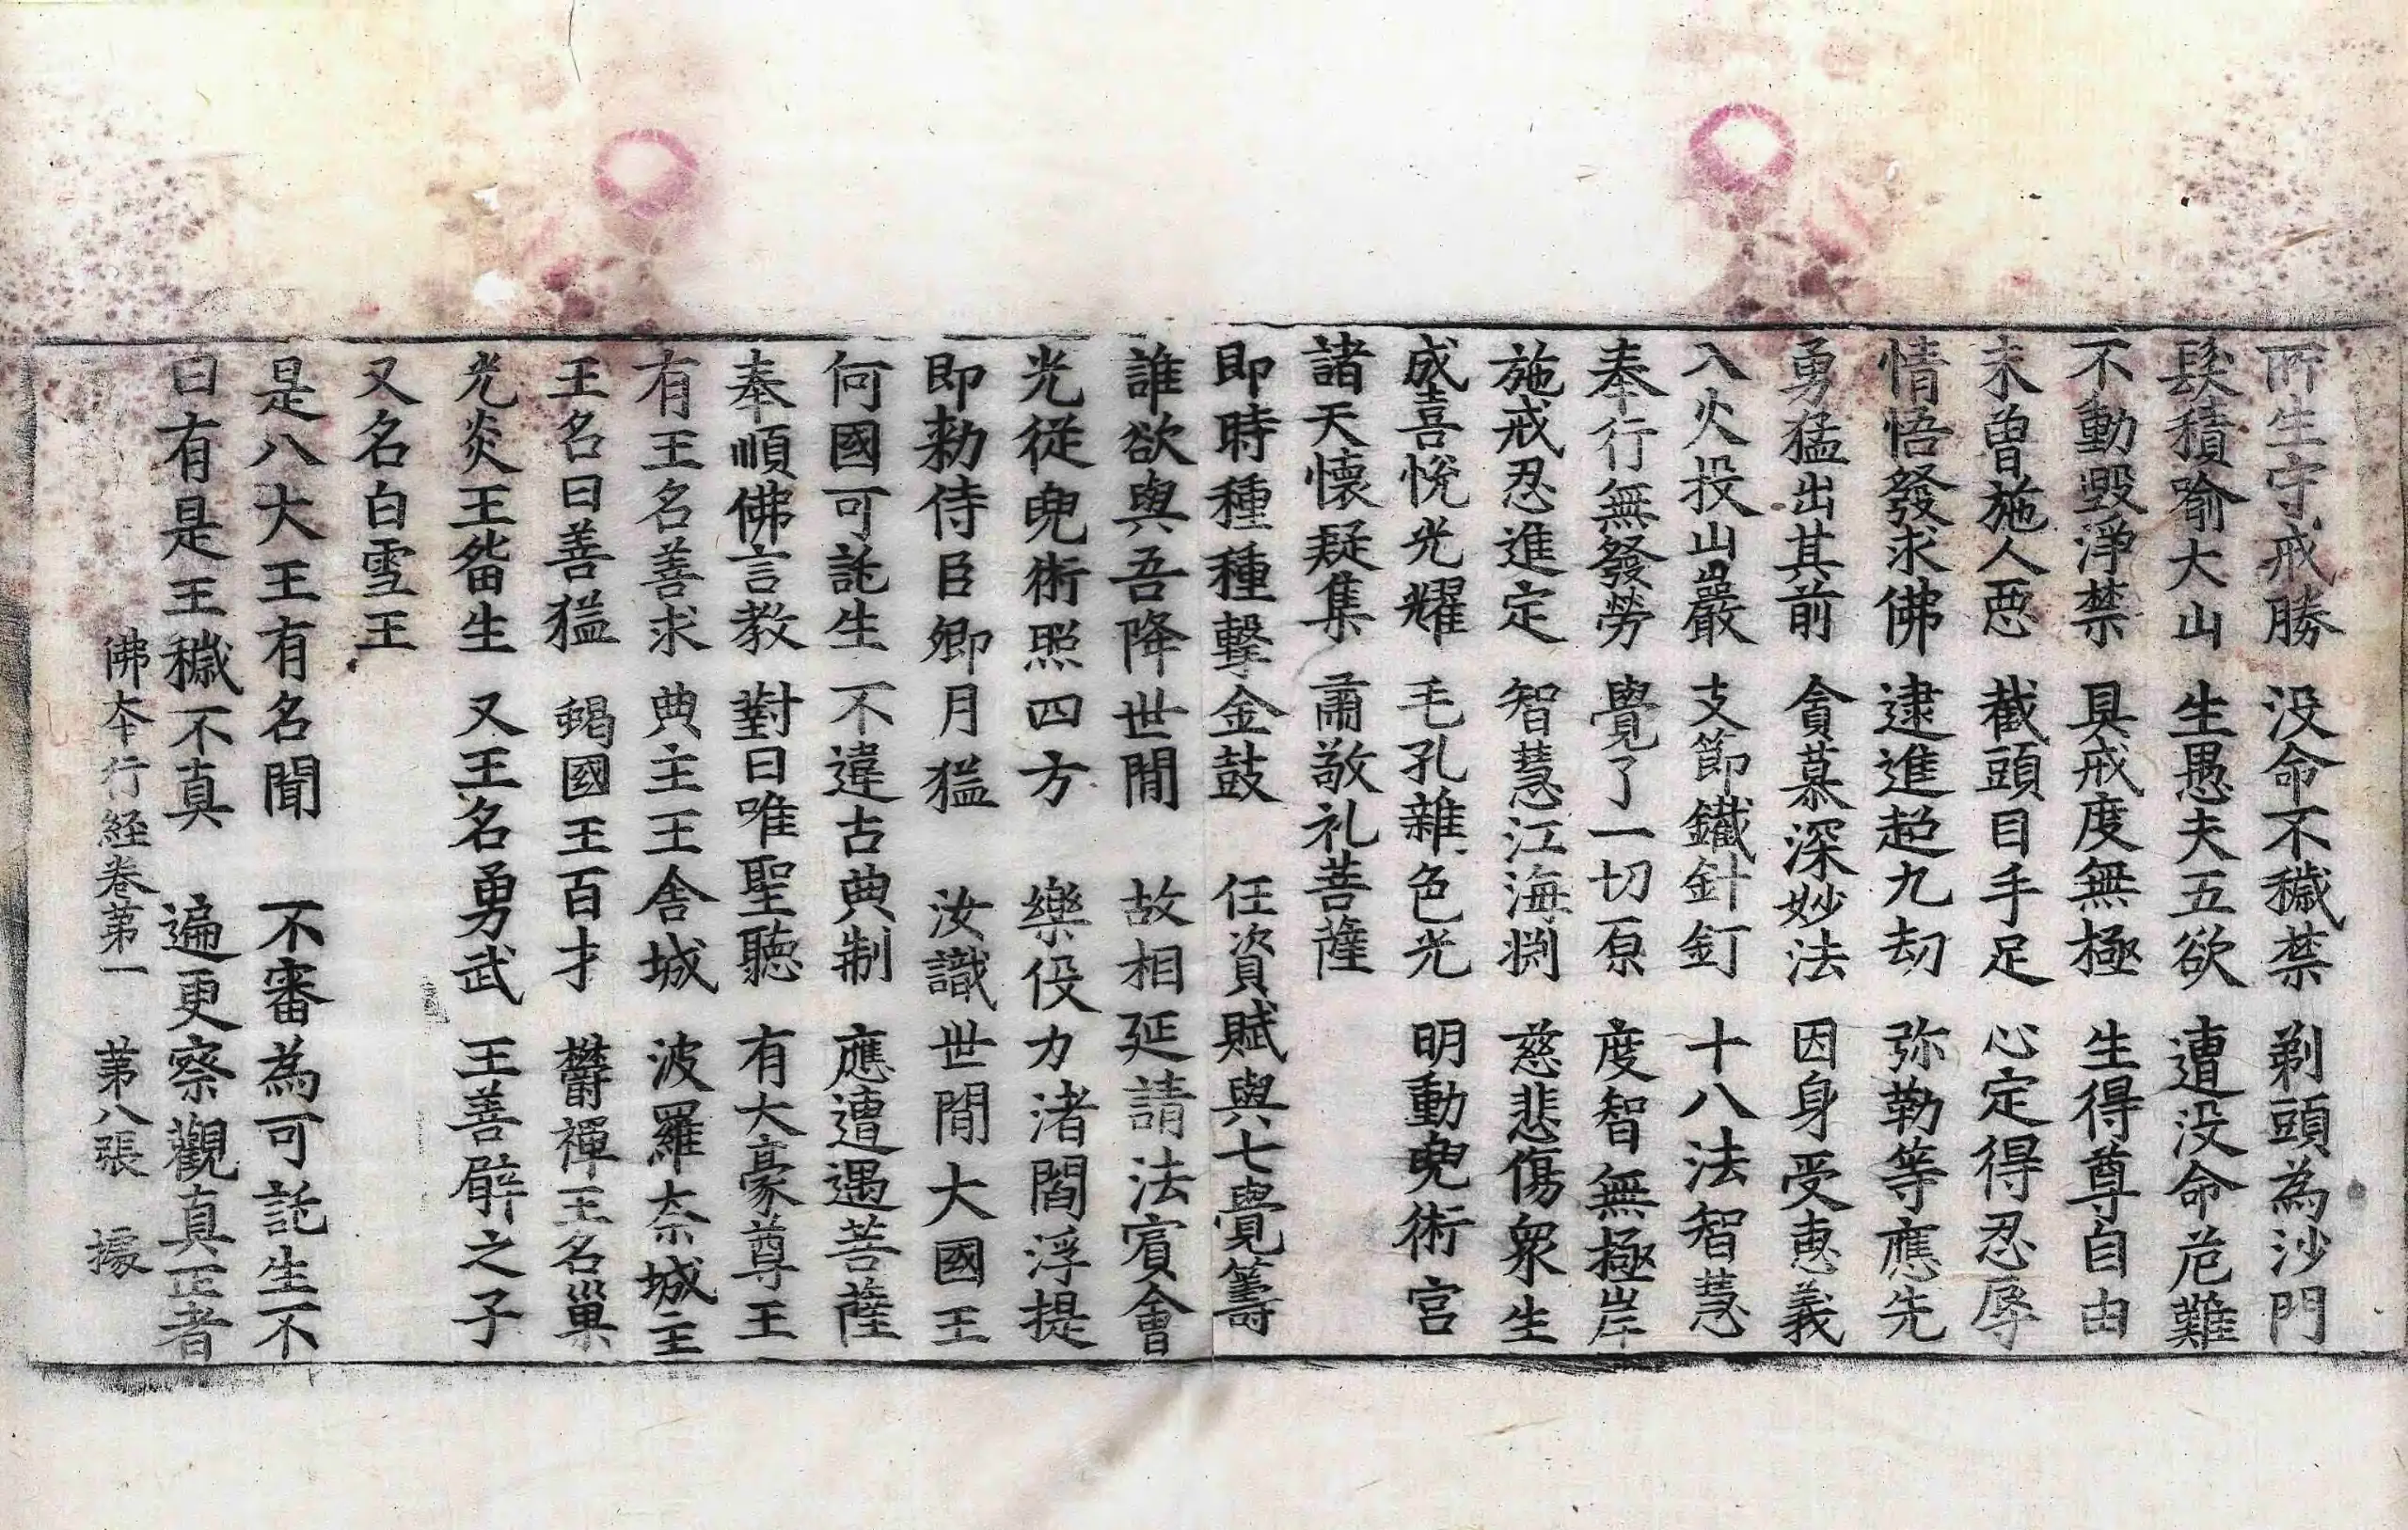 所生守戒勝 没命不穢禁 剃頭為沙門
髮積喻大山 生愚夫五欲 遭没命危難
不動毀淨禁 具戒度無極 生得尊自由
未曾施人惡 截頭目手足 心定得忍辱
情悟發求佛 逮進超九劫 弥勒等應先
勇猛出其前 貪慕深妙法 因身受惠義
入火投山巖 支節鐵針釘 十八法智慧
奉行無發勞 覺了一切原 度智無極岸
施戒忍進定 智慧江海渕 慈悲傷衆生
咸喜悅光耀 毛孔雜色光 明動兜術宮
諸天懷疑集 肅敬礼菩薩
即時種種擊金鼓 任資賦與七覺籌
誰欲與吾降世間 故相延請法賓會
光從兜術照四方 樂伇力渚閻浮提
即勑侍臣卿月猛 汝識世間大國王
何國可託生 不違古典制 應遭遇菩薩
奉順佛言教 對曰唯聖聽 有大豪尊王
有王名善求 典主王舍城 波羅奈城主
王名曰善猛 蝎國王百才 欝禪王名巢
光炎王㽞生 又王名勇武 王善臂之子
又名白雪王
是八大王有名聞 不審為可託生不
曰有是王穢不真 遍更察觀真正者
佛本行経卷第一 苐八張 據